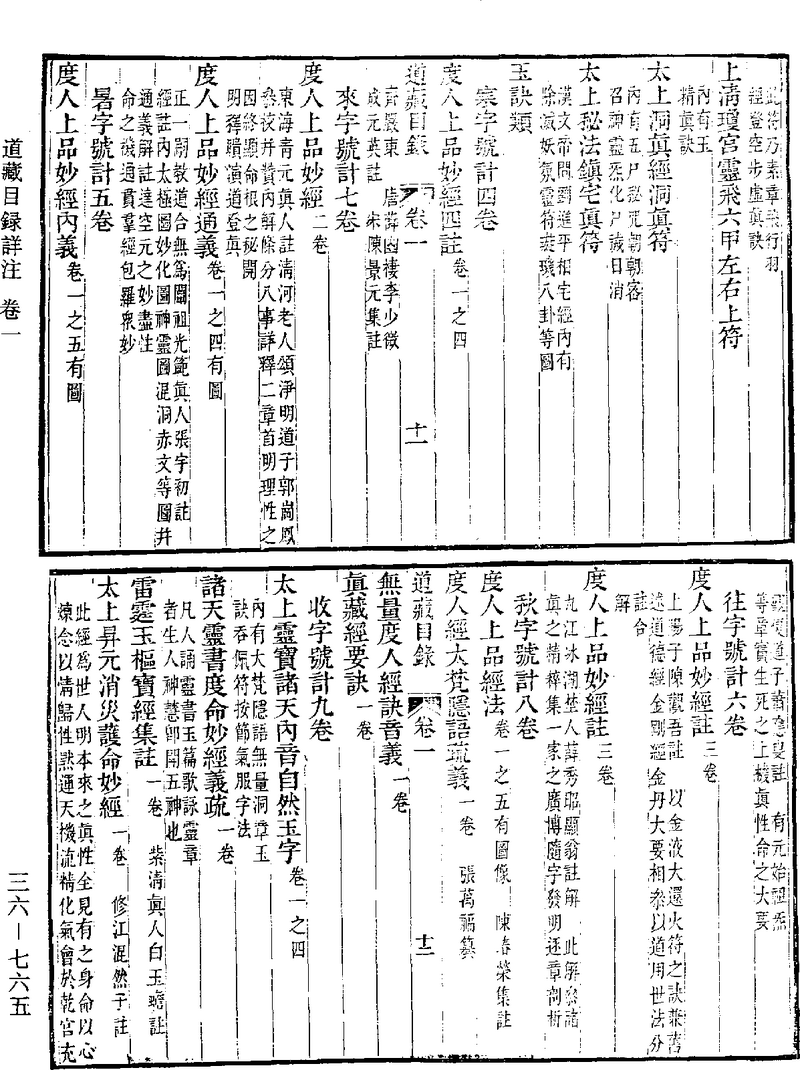 此符乃素章兼行羽
經登空步虛真訣
上清瓊宮靈飛六甲左右上符
內有玉
精真訣
太上洞真經洞真符
內有五尸秘咒朝朝客
召神靈炁化尸誡日消
太上秘法鎮宅真符
漢文帝問劉進平相宅經內有
除滅妖氛靈符璇璣八卦等圖
玉訣類
寒字號計四卷
度人上品妙經四註 卷一之四
道藏目錄 卷一 十一
齊嚴東 唐薛幽棲李少微
成元英註 宋陳景元集註
來字號計七卷
度人上品妙經 二卷
東海青元真人註清河老人頌淨明道子郭崗鳳
叅校并贊內解條分八事詳釋二章首明理性之
因終顯命根之秘開
明釋贖演道登真
度人上品妙經通義 卷一之四有圖
正一嗣教道合無為闡祖光範真人張宇初註
經註內太極圖妙化圖神靈圖混洞赤文等圖并
通義解註達空元之妙盡性
命之機通貫羣經包羅衆妙
暑字號計五卷
度人上品妙經內義 卷一之五有圖
觀復道子蕭應叟註 有元始祖炁
等章實生死之上機真性命之大要
往字號計六卷
度人上品妙經註 三卷
上陽子陳觀吾註 以金液大還火符之訣兼舊
述道德經金剛經金丹大要相叅以道用世法分
註合
解
度人上品妙經註 三卷
九江冰湖埜人薛秀昭顯翁註解 此解叅諸
真之精粹集一家之廣博隨字發明逐章剖析
秋字號計八卷
度人上品經法 卷一之五有圖像 陳春榮集註
度人經大梵隱語疏義 一卷 張萬福纂
道藏目錄 卷一 十二
無量度人經訣音義 一卷
真藏經要訣 一卷
收字號計九卷
太上靈寶諸天內音自然玉字 卷一之四
內有大梵隱語無量洞章玉
訣吞佩符按節氣服字法
諸天靈書度命妙經義疏 一卷
凡人誦靈書玉篇歌詠靈章
者生人神慧卽開五神也
雷霆玉樞寶經集註 一卷 紫清真人白玉蟾註
太上昇元消災護命妙經 一卷 修江混然子註
此經為世人明本來之真性全見有之身命以心
煉念以清歸性默通天機流精化氣會於乾宮充
道藏目録詳注 卷一
三六—七六五